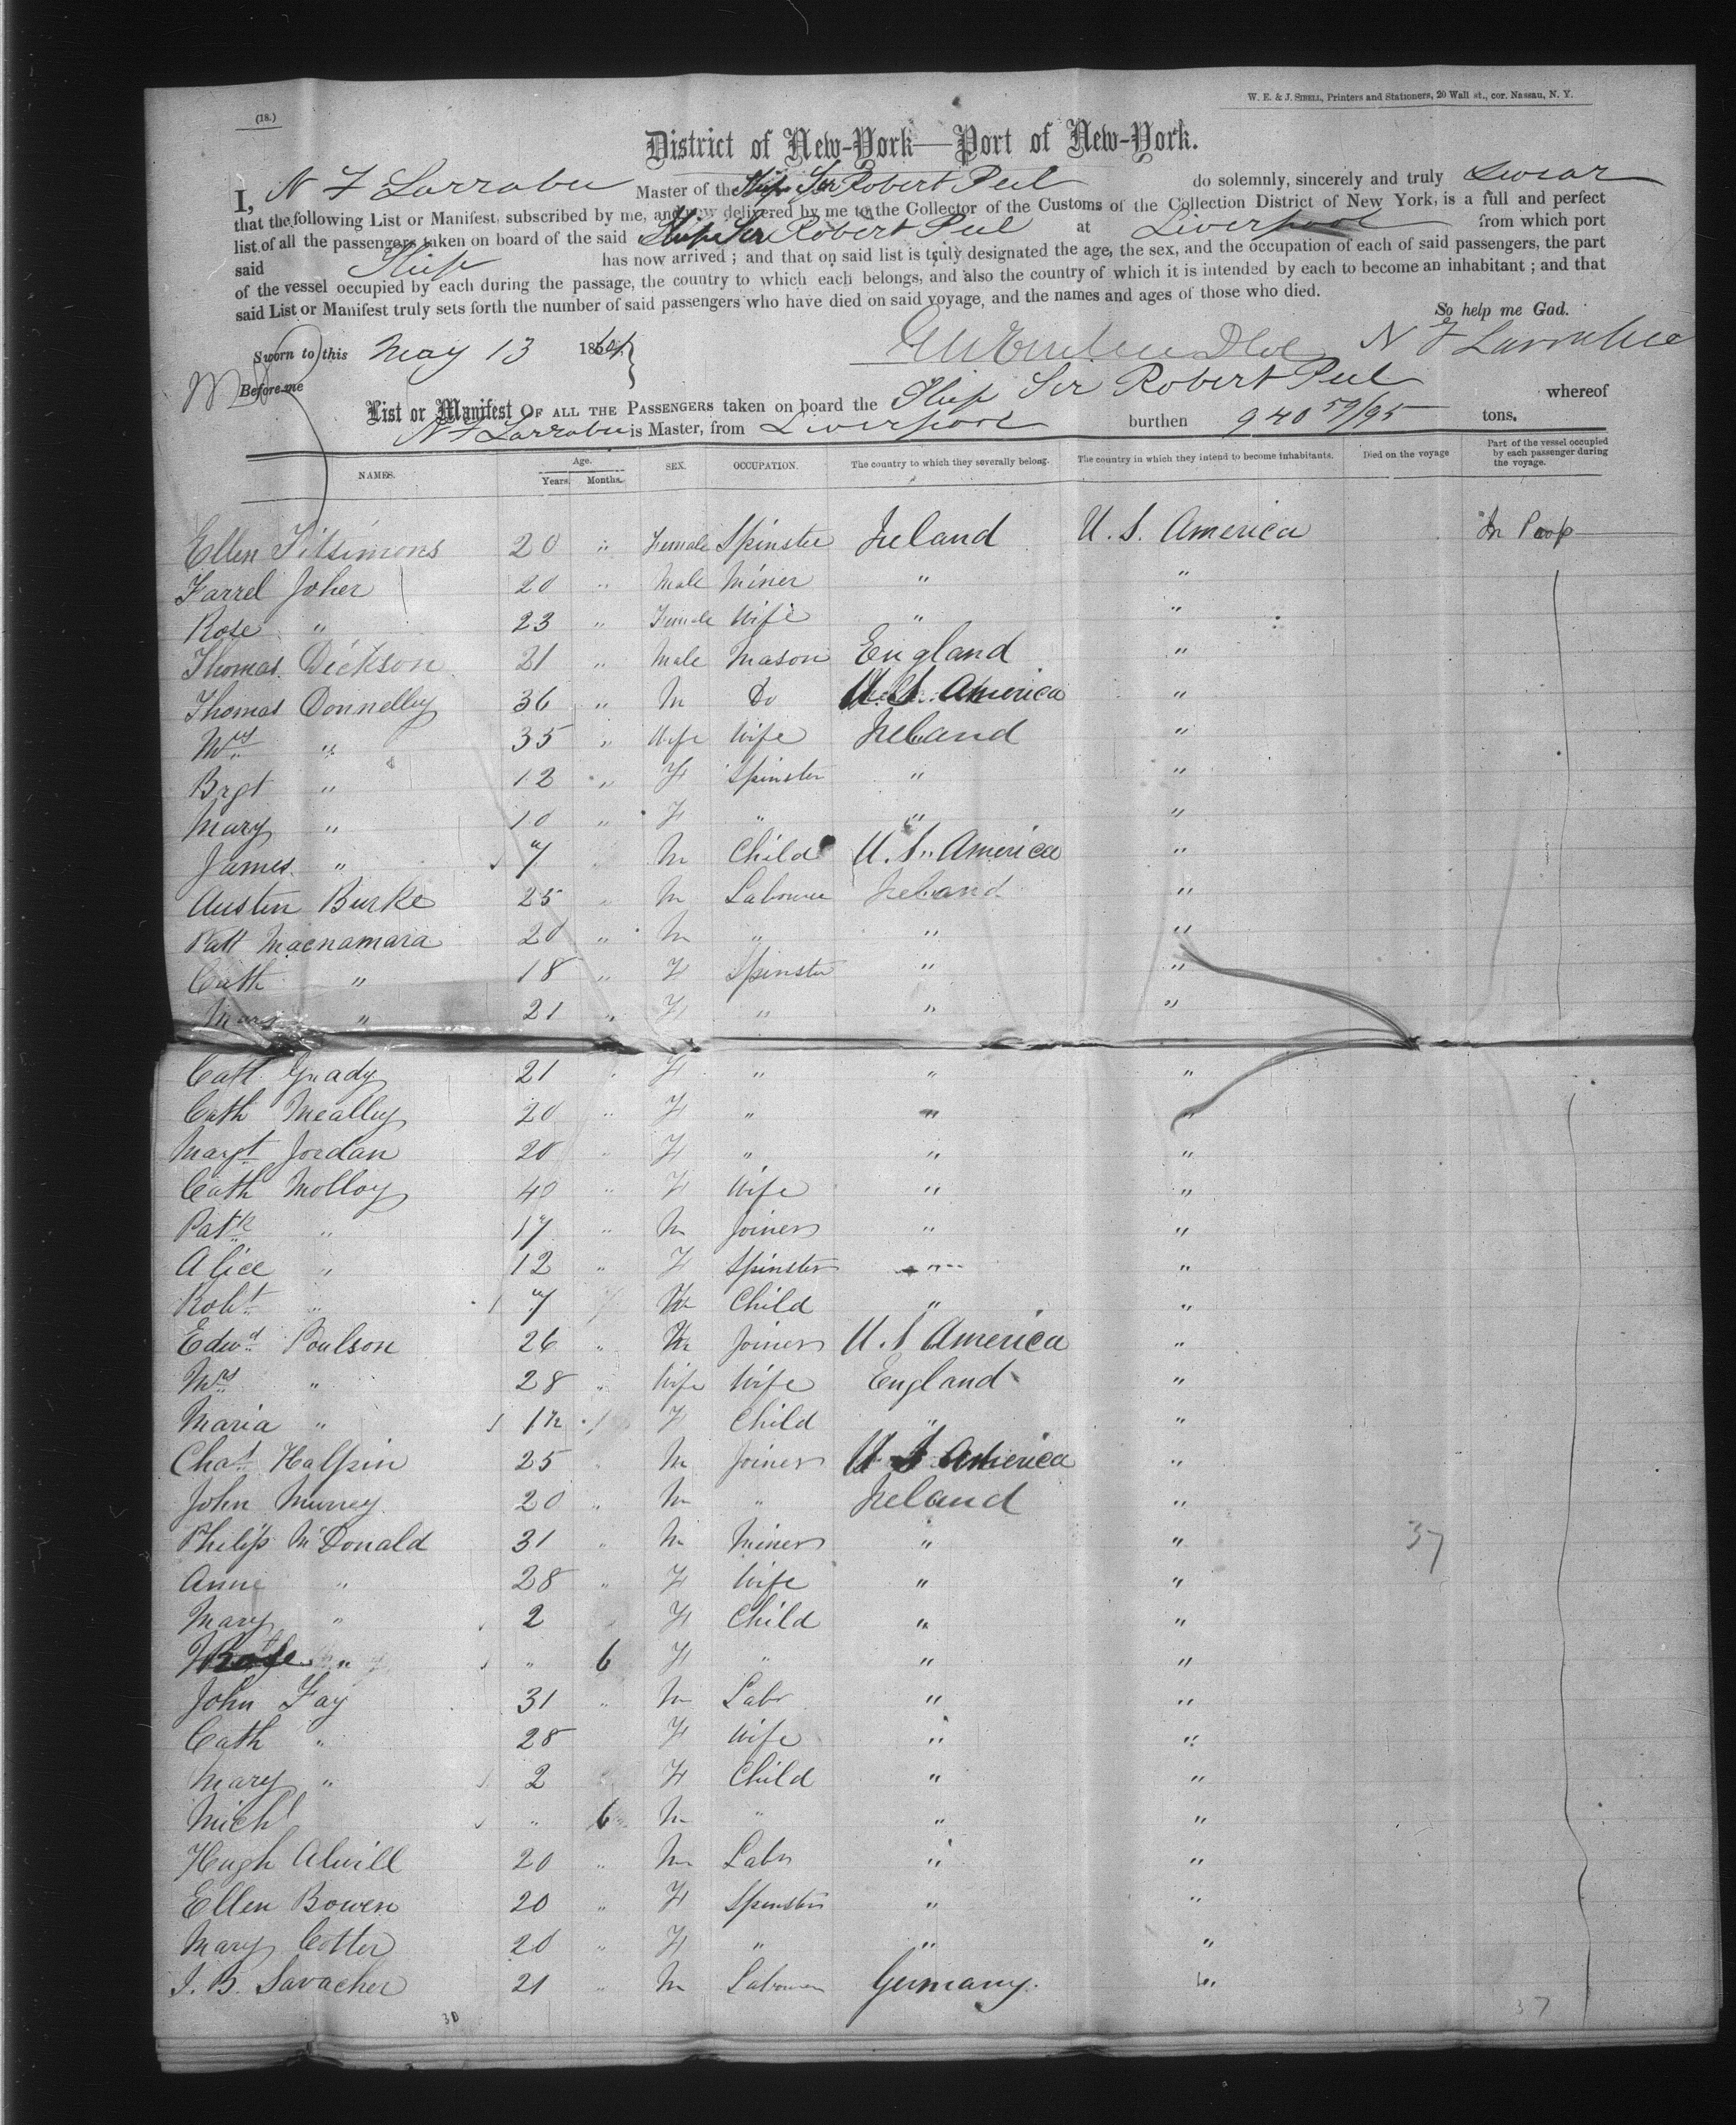 (18.)
W. E. & J. SIBELL, Printers and Stationers, 20 Wall st., cor. Nassau, N. Y.
District of New-York—Port of New-York.
I, N F Larrabee Master of the Ship Sir Robert Peel do solemnly, sincerely and truly swear
that the following List or Manifest, subscribed by me, and now delivered by me to the Collector of the Customs of the Collection District of New York, is a full and perfect
list of all the passengers taken on board of the said Ship Sir Robert Peel at Liverpool from which port
said Ship has now arrived ; and that on said list is truly designated the age, the sex, and the occupation of each of said passengers, the part
of the vessel occupied by each during the passage, the country to which each belongs, and also the country of which it is intended by each to become an inhabitant ; and that
said List or Manifest truly sets forth the number of said passengers who have died on said voyage, and the names and ages of those who died.
So help me God.
Sworn to this May 13 1864 N F Larrabee
Before me
List or Manifest OF ALL THE PASSENGERS taken on board the Ship Sir Robert Peel whereof
N F Larrabee is Master, from Liverpool burthen 940 59/95 tons.
NAMES. Age. Years. Months. SEX. OCCUPATION. The country to which they severally belong. The country in which they intend to become inhabitants. Died on the voyage Part of the vessel occupied by each passenger during the voyage.
Ellen Fitsimons 20 " Female Spinster Ireland U. S. America In Poop
Farrel Joher 20 " Male Miner " "
Rose " 23 " Female Wife " "
Thomas Dickson 21 " Male Mason England "
Thomas Donnelly 36 " M Do U. S. America "
Mrs " 35 " Wife Wife Ireland "
Brgt " 12 " F Spinster " "
Mary " 10 " F " " "
James " 7 M Child U. S. America "
Austin Burke 25 " M Labourer Ireland "
Patt Macnamara 20 " M " " "
Cath " 18 " F Spinster " "
Mary " 21 " F " " "
Cath Grady 21 " F " " "
Cath Mealley 20 " F " " "
Margt Jordan 20 " F " " "
Cath Molloy 40 " F Wife " "
Patk " 17 " M Joiner " "
Alice " 12 " F Spinster " "
Robt " 7 M Child " "
Edwd Poulson 26 " M Joiner U. S America "
Mrs " 28 " Wife Wife England "
Maria " F Child " "
Chas Halpin 25 " M Joiner U S America "
John Murrey 20 " M " Ireland "
Philip McDonald 31 " M Miner " " 37
Anne " 28 " F Wife " "
Mary " 2 " F Child " "
" " 6 F " " "
John Fay 31 " M Labr " "
Cath " 28 F Wife " "
Mary " 2 F Child " "
Michl " 6 M " " "
Hugh Alwill 20 " M Labr " "
Ellen Bowen 20 " F Spinster " "
Mary Cotter 20 " F " " "
J. B. Savacher 21 " M Labourer Germany "
37